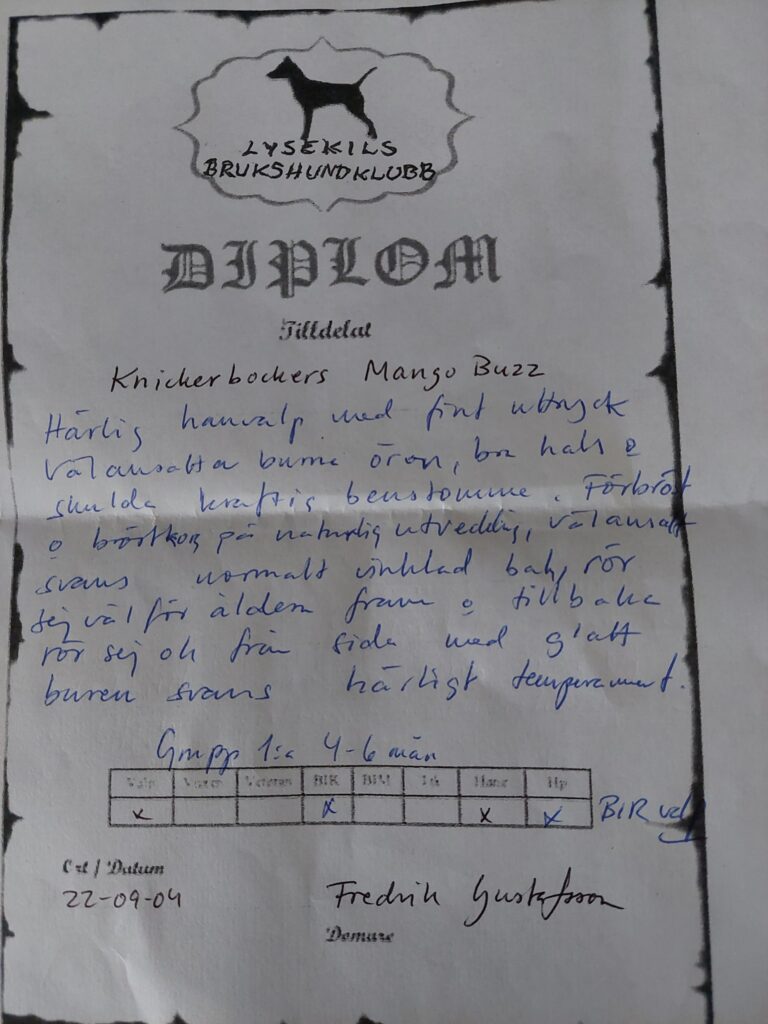 LYSEKILS
BRUKSHUNDKLUBB
DIPLOM
Tilldelat
Knickerbockers Mango Buzz
Härlig hanvalp med fint uttryck
välansatta burna öron, bra hals o
skulda kraftig benstomme. Förbröst
o bröstkorg på naturlig utveckling, välansatt
svans normalt vinklad bak, rör
sej väl för åldern fram o tillbaka
rör sej ok från sida med glatt
buren svans härligt temperament.
Grupp 1:a 4-6 mån
Valp Vuxen Veteran BIR BIM Tik Hane Hp
x x x x BIR valp
Ort / Datum
22-09-04 Fredrik Gustafsson
Domare